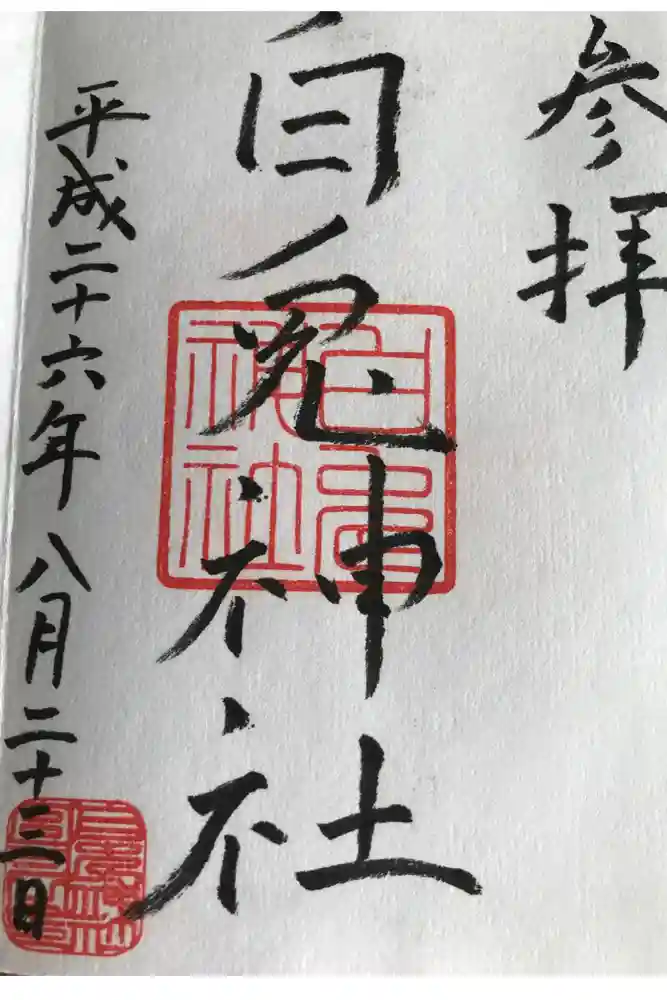 参拝
白兔神社
白兔神社
平成二十六年八月二十三日